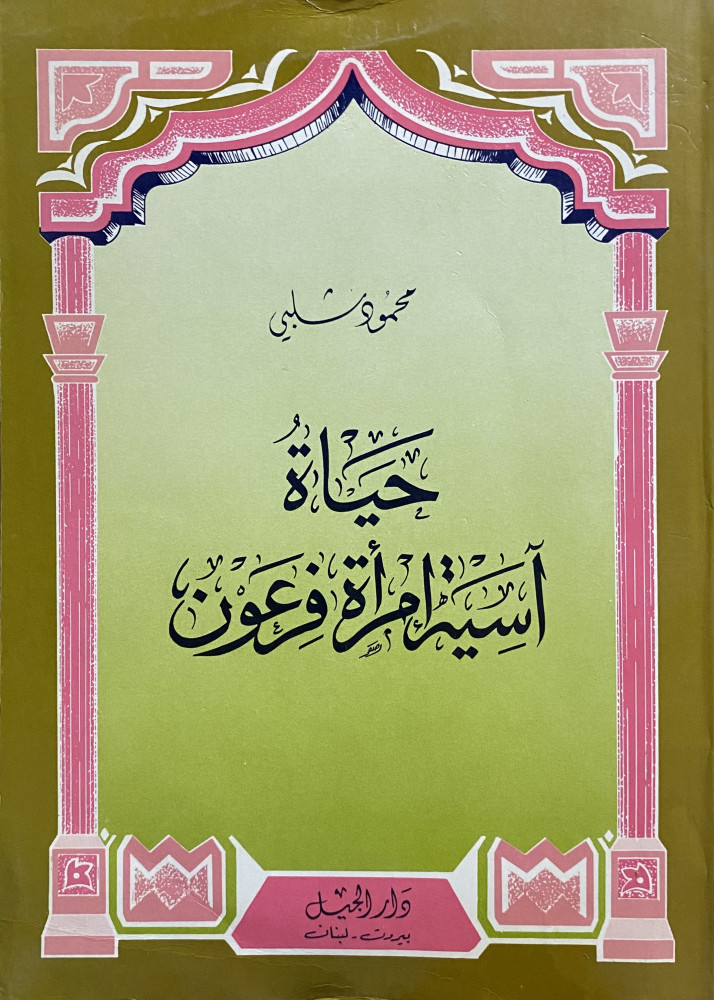 محمود شلبي
حَيَاةُ
آسِيَة امْرأَة فِرعَون
دَار الجيل
بيروت - لبنان